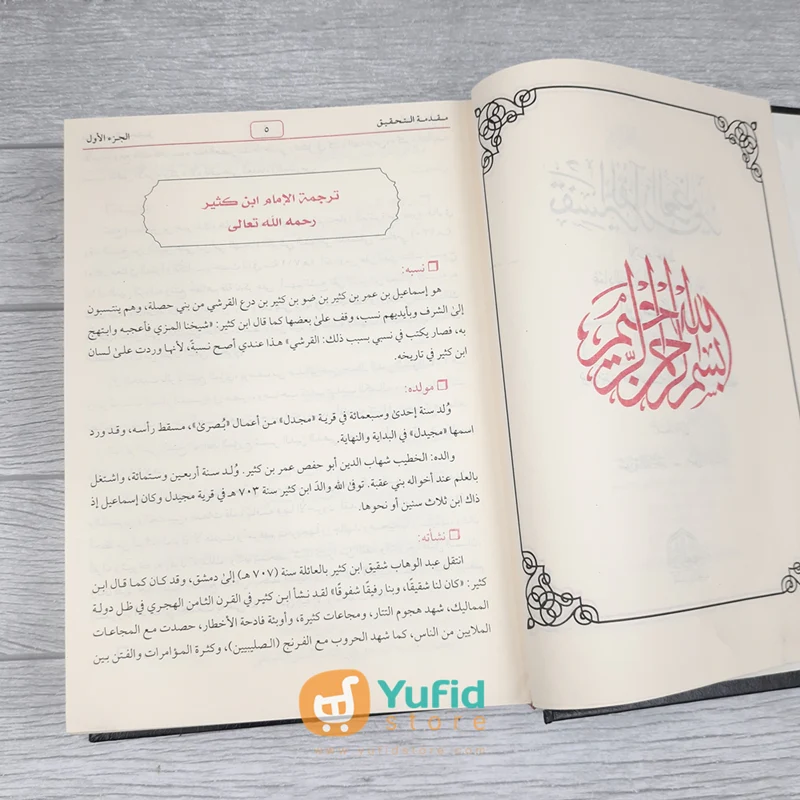 بسم الله الرحمن الرحيم
مقدمة التحقيق
٥
الجزء الأول
ترجمة الإمام ابن كثير
رحمه الله تعالى
نسبه:
هو إسماعيل بن عمر بن كثير بن ضو بن كثير بن درع القرشي من بني حصلة، وهم ينتسبون
إلىٰ الشرف وبأيديهم نسب، وقف علىٰ بعضها كما قال ابن كثير: «شيخنا المزي فأعجبه وابتهج
به، فصار يكتب في نسبي بسبب ذلك: القرشي» هذا عندي أصح نسبةً، لأنها وردت علىٰ لسان
ابن كثير في تاريخه.
مولده:
وُلد سنة إحدىٰ وسبعمائة في قرية «مجدل» من أعمال «بُصرىٰ»، مسقط رأسه، وقد ورد
اسمها «مجيدل» في البداية والنهاية.
والده: الخطيب شهاب الدين أبو حفص عمر بن كثير. وُلد سنة أربعين وستمائة، واشتغل
بالعلم عند أخواله بني عقبة. توفىٰ الله والدَ ابن كثير سنة ٧٠٣ هـ في قرية مجيدل وكان إسماعيل إذ
ذاك ابن ثلاث سنين أو نحوها.
نشأته:
انتقل عبد الوهاب شقيق ابن كثير بالعائلة سنة (٧٠٧ هـ) إلىٰ دمشق، وقد كان كما قال ابن
كثير: «كان لنا شقيقًا، وبنا رفيقًا شفوقًا» لقد نشأ ابن كثير في القرن الثامن الهجري في ظل دولة
المماليك، شهد هجوم التتار، ومجاعات كثيرة، وأوبئة فادحة الأخطار، حصدت مع المجاعات
الملايين من الناس، كما شهد الحروب مع الفرنج (الصليبيين)، وكثرة المؤامرات والفتن بين
Yufid
store
www.yufidstore.com